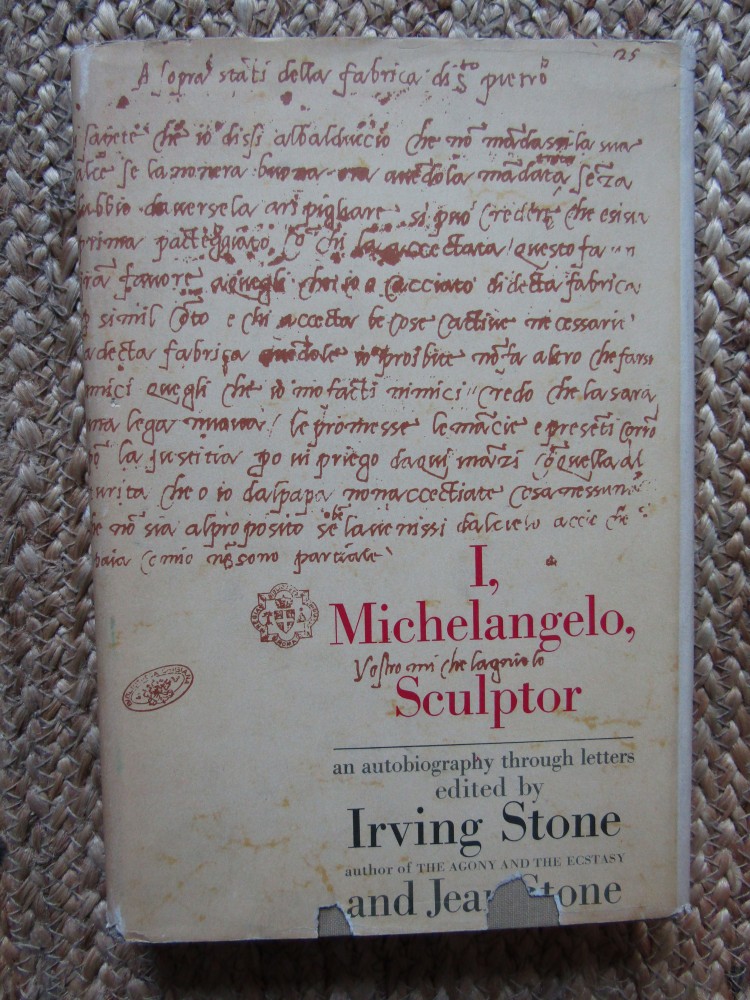 125
A sopra stati della fabrica di Sto pietro
sapete che io dissi albalduccio che no mandassi la sua
alce se la nonera buona ora avendola mandata senza
dubbio daversela aripigliare si puo credere che esisia
prima pacteggiato co chi la accectata questo fa un
gran favore aquegli che io o cacciato didecta fabrica
simil coto e chi accecta le cose cactive necessarie
a decta fabrica avendole io proibite no fa altro che farsi
amici quegli che io mo facti nimici credo che la sara
una lega nuova le promesse le mancie e presenti corro
la iustitia po vi priego da qui inanzi co quella al
urita che o io dalpapa non accectiate cosa nessuna
che no sia al proposito se la venissi dal cielo accio che
paia como no sono partiale
I,
Michelangelo,
Vostro mi che lagniolo
Sculptor
an autobiography through letters
edited by
Irving Stone
author of THE AGONY AND THE ECSTASY
and Jean Stone